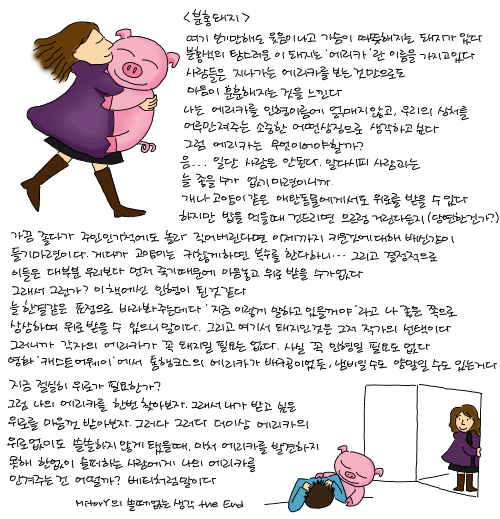 <분홍돼지>
여기 보기만해도 웃음이나고 가슴이 따뜻해지는 돼지가 있다
분홍색의 탐스러운 이 돼지는 '에리카' 란 이름을 가지고있다
사람들은 지나가는 에리카를 보는것만으로도
마음이 훈훈해지는 것을 느낀다
나는 에리카를 인형이름에 얽매지않고, 우리의 상처를
어루만져주는 소중한 어떤상징으로 생각하고 싶다
그럼 에리카는 무엇이어야할까?
음... 일단 사람은 안된다. 알다시피 사람과는
늘 좋을수가 없기 마련이니까.
개나 고양이같은 애완동물에게서도 위로를 받을 수 있다
하지만 밥을 먹을때 건드리면 으르렁 거린다든지(당연한건가?)
가끔 졸다가 주인인기척에도 놀라 짖어버린다면 이제까지 키운것에대해 배신감이
들기마련이다. 게다가 고양이는 귀찮게하면 복수를 한다하니... 그리고 결정적으로
이들은 대부분 우리보다 먼저 죽기때문에 마음놓고 위로 받을 수가없다
그래서 그런가? 이 책에선 인형이 된것같다
늘 한결같은 표정으로 바라봐주는데다 '지금 이렇게 말하고 있을꺼야' 라고 나 좋은 쪽으로
상상하며 위로받을 수 있으니 말이다. 그리고 여기서 돼지인것은 그저 작가의 선택이다
그러니까 각자의 에리카가 꼭 돼지일 필요는 없다. 사실 꼭 인형일 필요도 없다
영화 '캐스트어웨이' 에서 톰행크스의 에리카가 배구공이었듯, 냄비일수도 양말일 수도 있는거다
지금 절실히 위로가 필요한가?
그럼 나의 에리카를 한번 찾아보자. 그래서 내가 받고 싶은
위로를 마음껏 받아보자. 그러다 그러다 더이상 에리카의
위로없이도 쓸쓸하지 않게 됐을때, 미처 에리카를 발견하지
못해 한없이 슬퍼하는 사람에게 나의 에리카를
안겨주는건 어떨까? 베티처럼말이다
의 쓸떼없는 생각 the End